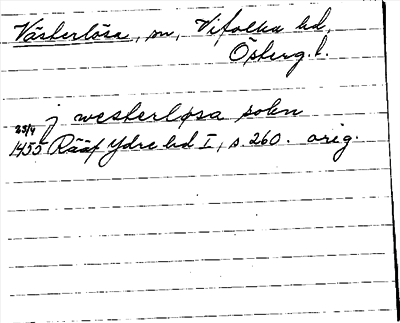 Västerlösa, sn, Vifolka hd,
Österg. l.
j westerløsa sokn
25/4
1455 Rääf Ydre hd I, s. 260. orig.